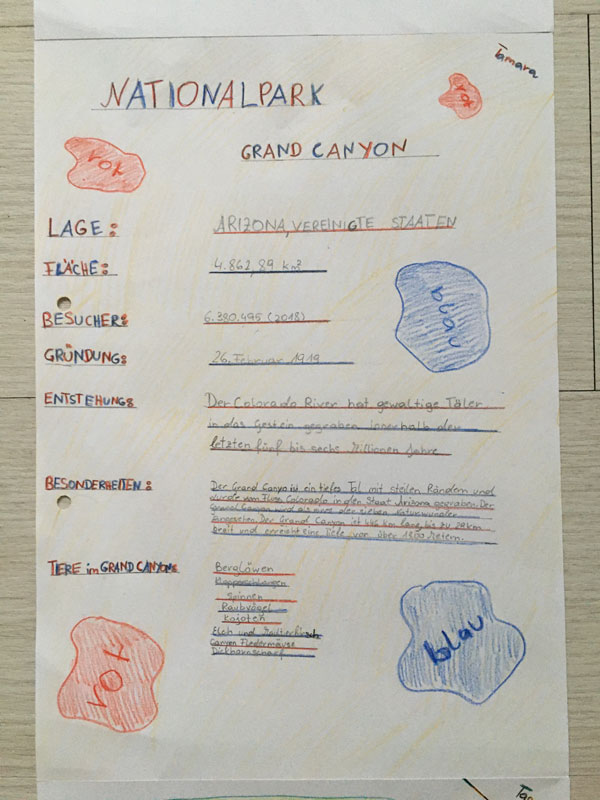 Tamara
NATIONALPARK
rot
rot
GRAND CANYON
LAGE: ARIZONA, VEREINIGTE STAATEN
FLÄCHE: 4.862,89 km²
BESUCHER: 6.380.495 (2018)
GRÜNDUNG: 26. Februar 1919
ENTSTEHUNG: Der Colorado River hat gewaltige Täler
in das Gestein gegraben innerhalb den
letzten fünf bis sechs Millionen Jahre.
BESONDERHEITEN: Der Grand Canyo ist ein tiefes Tal mit steilen Rändern und
wurde vom Fluss Colorado in den Staat Arizona gegraben. Der
Grand Canyon wird als eines der sieben Naturwunder
angesehen. Der Grand Canyon ist 446 km lang, bis zu 29 km
breit und erreicht eine Tiefe von über 1800 Metern.
TIERE im GRAND CANYON: Berglöwen
Klapperschlangen
Spinnen
Raubvögel
Kojoten
Elch und Maultierhirsch
Canyon Fledermäuse
Dickhornschaf
rot
blau